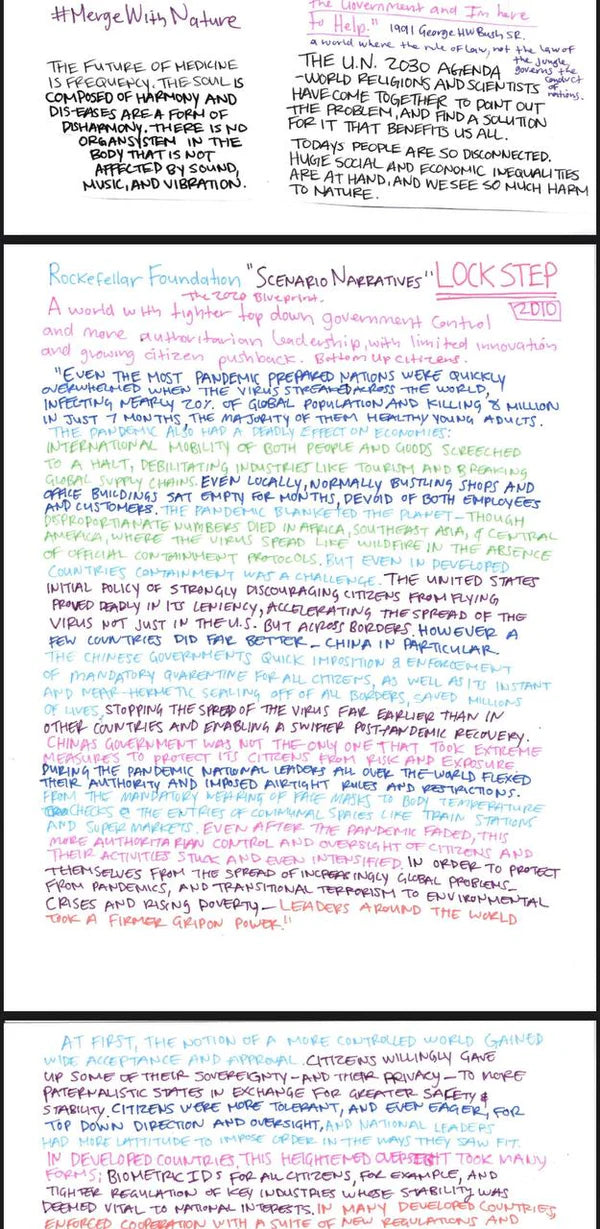 #MergeWithNature
THE FUTURE OF MEDICINE
IS FREQUENCY. THE SOUL IS
COMPOSED OF HARMONY AND
DIS-EASES ARE A FORM OF
DISHARMONY. THERE IS NO
ORGANSYSTEM IN THE
BODY THAT IS NOT
AFFECTED BY SOUND,
MUSIC, AND VIBRATION.
the Government and I'm here
to Help." 1991 George HW Bush SR.
a world where the rule of law, not the law of
the jungle,
governs the
conduct
of
nations.
THE U.N. 2030 AGENDA
-WORLD RELIGIONS AND SCIENTISTS
HAVE COME TOGETHER TO POINT OUT
THE PROBLEM, AND FIND A SOLUTION
FOR IT THAT BENEFITS US ALL.
TODAYS PEOPLE ARE SO DISCONNECTED.
HUGE SOCIAL AND ECONOMIC INEQUALITIES
ARE AT HAND, AND WE SEE SO MUCH HARM
TO NATURE.
Rockefellar Foundation "SCENARIO NARRATIVES" LOCK STEP
The 2020 Blueprint.
2010
A world with tighter top down government control
and more authoritarian leadership, with limited innovation
and growing citizen pushback. Bottom Up Citizens.
"EVEN THE MOST PANDEMIC PREPARED NATIONS WERE QUICKLY
OVERWHELMED WHEN THE VIRUS STREAKED ACROSS THE WORLD,
INFECTING NEARLY 20% OF GLOBAL POPULATION AND KILLING 8 MILLION
IN JUST 7 MONTHS, THE MAJORITY OF THEM HEALTHY YOUNG ADULTS.
THE PANDEMIC ALSO HAD A DEADLY EFFECT ON ECONOMIES:
INTERNATIONAL MOBILITY OF BOTH PEOPLE AND GOODS SCREECHED
TO A HALT, DEBILITATING INDUSTRIES LIKE TOURISM AND BREAKING
GLOBAL SUPPLY CHAINS. EVEN LOCALLY, NORMALLY BUSTLING SHOPS AND
OFFICE BUILDINGS SAT EMPTY FOR MONTHS, DEVOID OF BOTH EMPLOYEES
AND CUSTOMERS. THE PANDEMIC BLANKETED THE PLANET - THOUGH
DISPROPORTIANATE NUMBERS DIED IN AFRICA, SOUTHEAST ASIA, & CENTRAL
AMERICA, WHERE THE VIRUS SPEAD LIKE WILDFIRE IN THE ABSENCE
OF OFFICIAL CONTAINMENT PROTOCOLS. BUT EVEN IN DEVELOPED
COUNTRIES CONTAINMENT WAS A CHALLENGE. THE UNITED STATES
INITIAL POLICY OF STRONGLY DISCOURAGING CITIZENS FROM FLYING
PROVED DEADLY IN ITS LENIENCY, ACCELERATING THE SPREAD OF THE
VIRUS NOT JUST IN THE U.S. BUT ACROSS BORDERS. HOWEVER A
FEW COUNTRIES DID FAR BETTER - CHINA IN PARTICULAR.
THE CHINESE GOVERNMENTS QUICK IMPOSITION & ENFORCEMENT
OF MANDATORY QUARENTINE FOR ALL CITIZENS, AS WELL AS ITS INSTANT
AND NEAR-HERMETIC SEALING OFF OF ALL BORDERS, SAVED MILLIONS
OF LIVES, STOPPING THE SPRED OF THE VIRUS FAR EARLIER THAN IN
OTHER COUNTRIES AND ENABLING A SWIFTER POST-PANDEMIC RECOVERY.
CHINAS GOVERNMENT WAS NOT THE ONLY ONE THAT TOOK EXTREME
MEASURES TO PROTECT ITS CITIZENS FROM RISK AND EXPOSURE
DURING THE PANDEMIC NATIONAL LEADERS ALL OVER THE WORLD FLEXED
THEIR AUTHORITY AND IMPOSED AIRTIGHT RULES AND RESTRICTIONS.
FROM THE MANDATORY WEARING OF FACE MASKS TO BODY TEMPERATURE
CHECKS @ THE ENTRIES OF COMMUNAL SPACES LIKE TRAIN STATIONS
AND SUPER MARKETS. EVEN AFTER THE PANDEMIC FADED, THIS
MORE AUTHORITARIAN CONTROL AND OVERSIGHT OF CITIZENS AND
THEIR ACTIVITIES STUCK AND EVEN INTENSIFIED. IN ORDER TO PROTECT
THEMSELVES FROM THE SPREAD OF INCREASINGLY GLOBAL PROBLEMS -
FROM PANDEMICS, AND TRANSITIONAL TERRORISM TO ENVIRONMENTAL
CRISES AND RISING POVERTY - LEADERS AROUND THE WORLD
TOOK A FIRMER GRIP ON POWER."
AT FIRST, THE NOTION OF A MORE CONTROLLED WORLD GAINED
WIDE ACCEPTANCE AND APPROVAL. CITIZENS WILLINGLY GAVE
UP SOME OF THEIR SOVEREIGNTY - AND THEIR PRIVACY - TO MORE
PATERNALISTIC STATES IN EXCHANGE FOR GREATER SAFETY &
STABILITY. CITIZENS WERE MORE TOLERANT, AND EVEN EAGER, FOR
TOP DOWN DIRECTION AND OVERSIGHT, AND NATIONAL LEADERS
HAD MORE LATTITUDE TO IMPOSE ORDER IN THE WAYS THEY SAW FIT.
IN DEVELOPED COUNTRIES, THIS HEIGHTENED OVERSIGHT TOOK MANY
FORMS; BIOMETRIC IDS FOR ALL CITIZENS, FOR EXAMPLE, AND
TIGHTER REGULATION OF KEY INDUSTRIES WHOSE STABILITY WAS
DEEMED VITAL TO NATIONAL INTERESTS. IN MANY DEVELOPED COUNTRIES,
ENFORCED COOPERATION WITH A SUITE OF NEW REGULATIONS AND